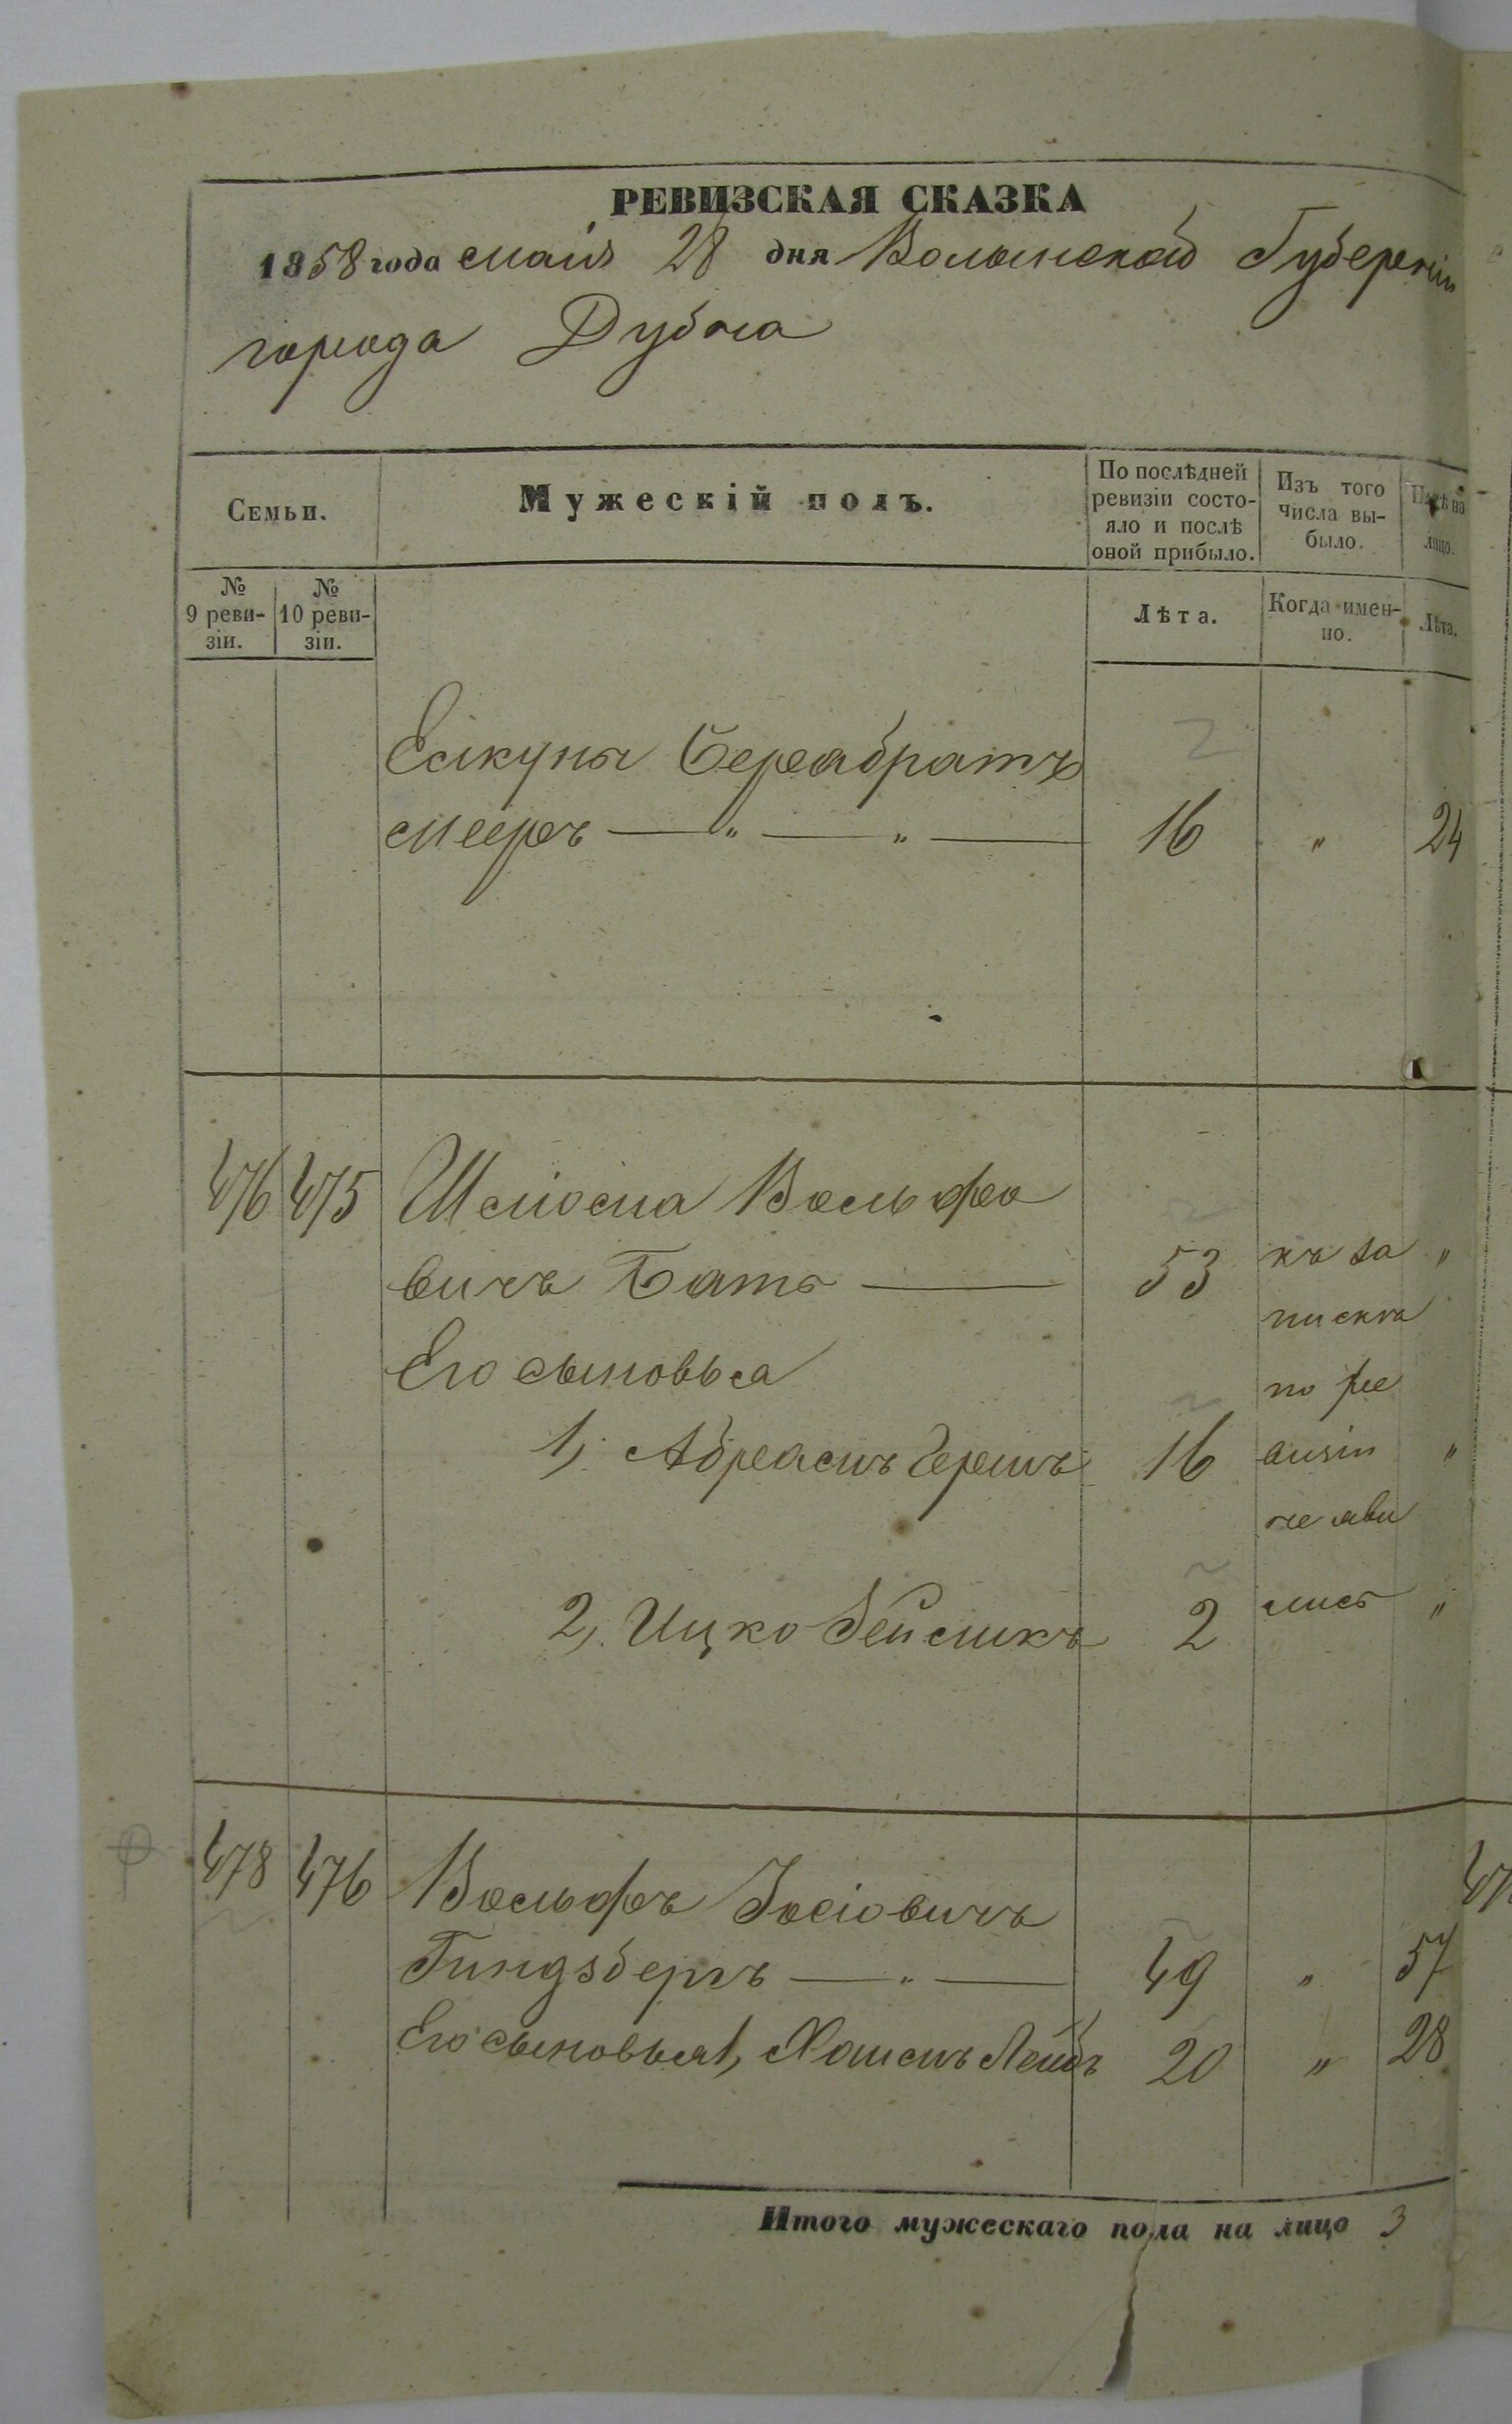 РЕВИЗСКАЯ СКАЗКА
1858 года маія 28 дня Волынской Губерніи
города Дубна
Семьи.
Мужескій полъ.
По послѣдней ревизіи состо-яло и послѣ оной прибыло.
Изъ того числа вы-было.
лицо.
№ 9 реви-зіи.
№ 10 реви-зіи.
Лѣта.
Когда имен-но.
Лѣта.
2
братъ
Мееръ — " — " — 16 " 24
476 475 Шліома Вольфо
вичъ Батъ — 53 къ за "
пискѣ
Его сыновья по ре
1, Абрамъ Гершъ 16 визіи "
не яви
2, Ицко Зейликъ 2 лись "
478 476 Вольфъ Іосіовичъ
Гиндзбергъ — " — 49 " 57
Его сыновья 1, Хаимъ Лейбъ 20 " 28
Итого мужескаго пола на лицо 3